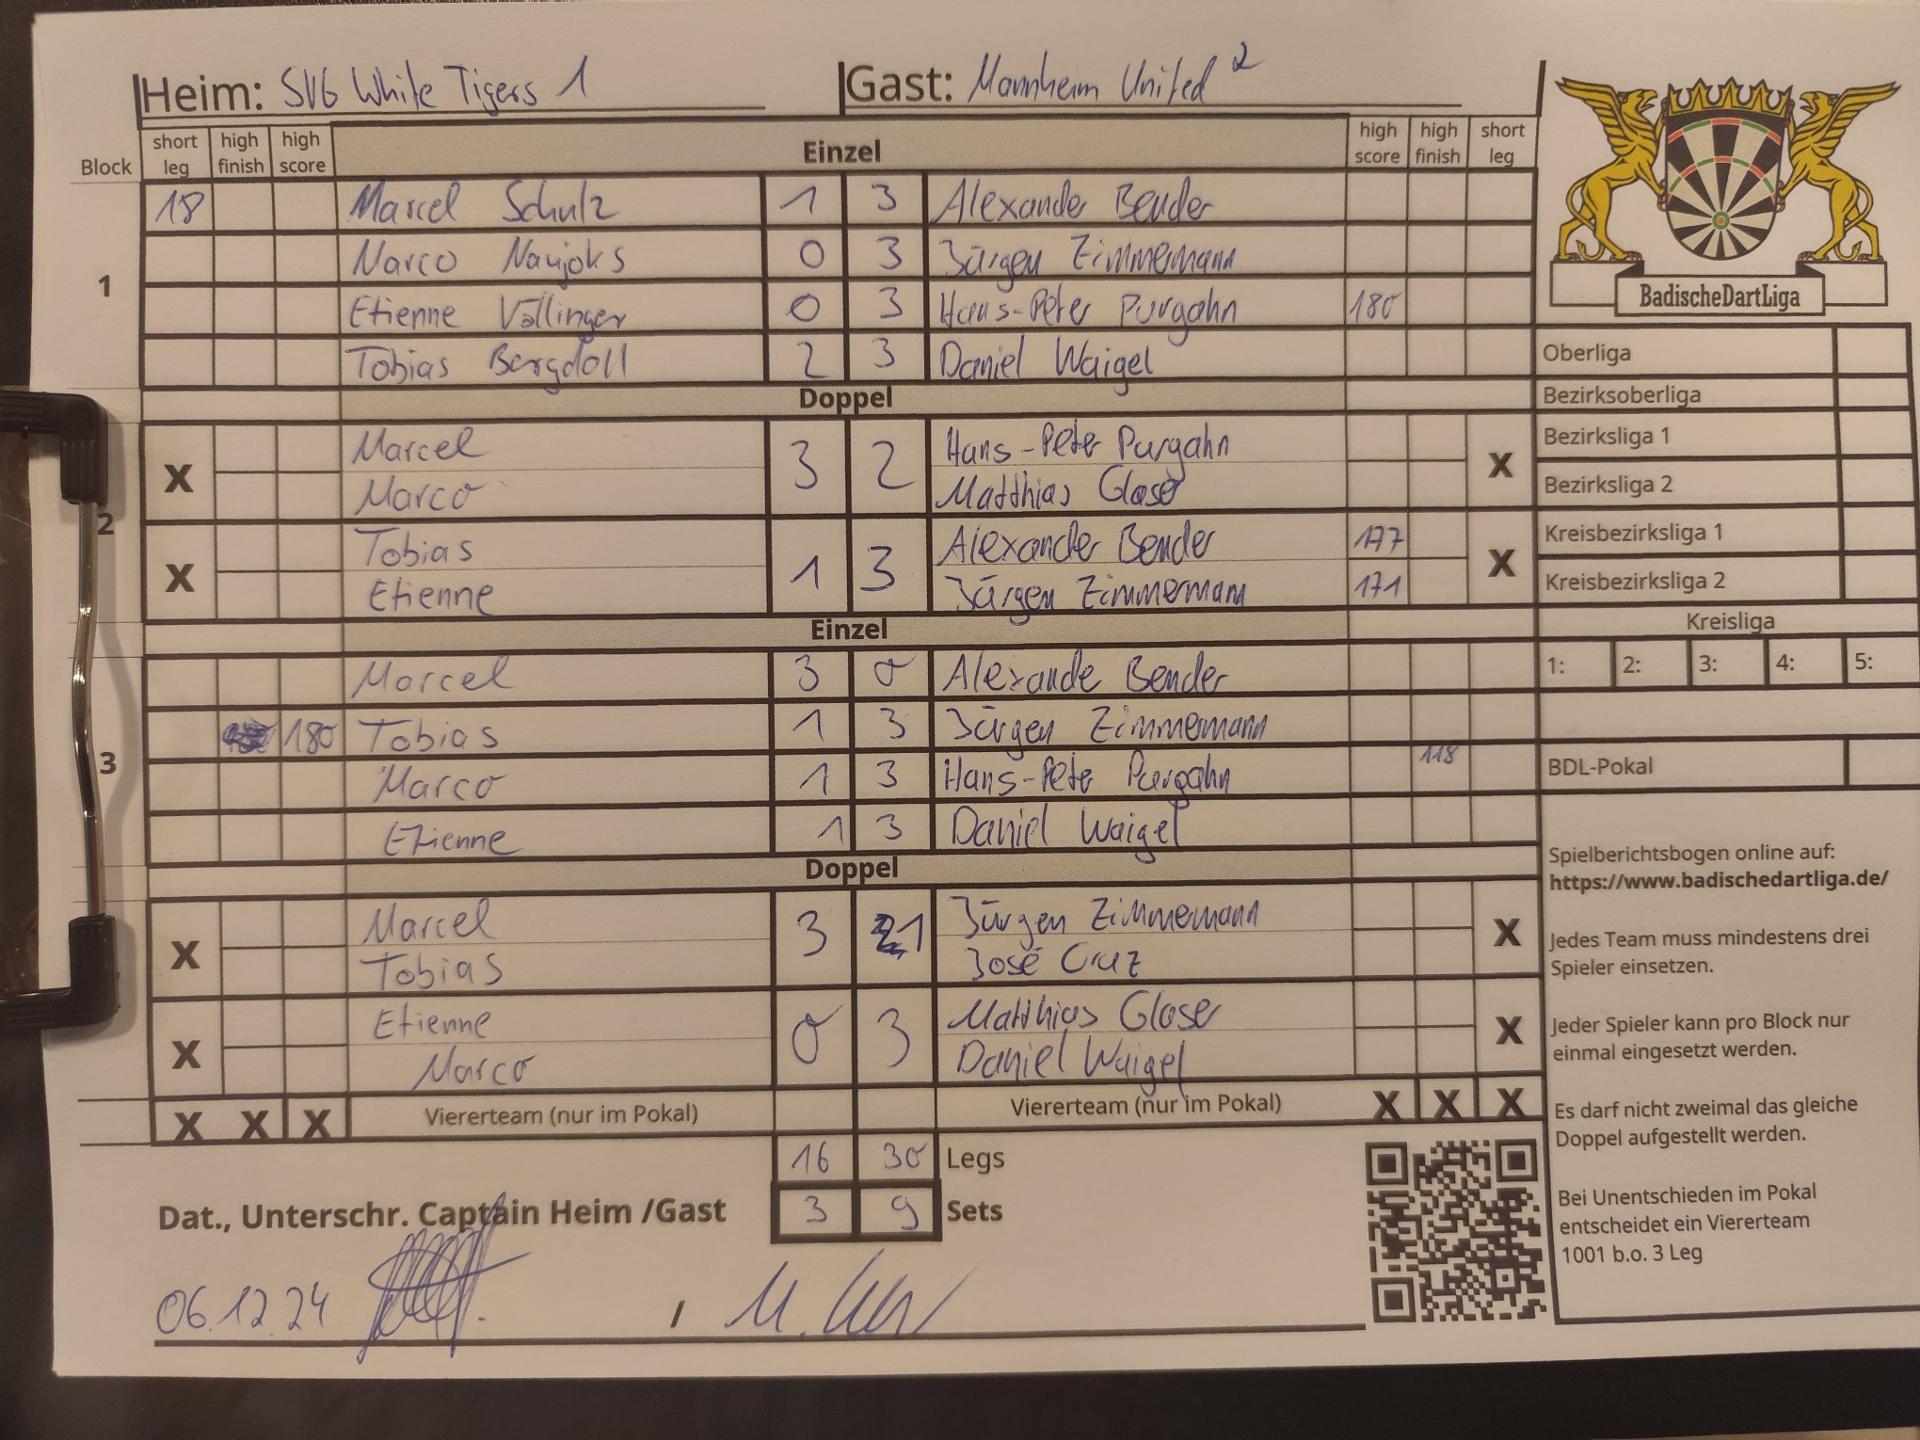 Heim: SVG White Tigers 1 Gast: Mannheim United 2
Block short leg high finish high score Einzel high score high finish short leg
1
18 Marcel Schulz 1 3 Alexander Bender
Marco Naujoks 0 3 Jürgen Zimmermann
Etienne Völlinger 0 3 Hans-Peter Purgahn 180
Tobias Bergdoll 2 3 Daniel Waigel
Doppel
2
X Marcel 3 2 Hans-Peter Purgahn X
Marco Matthias Glaser
X Tobias 1 3 Alexander Bender 177 X
Etienne Jürgen Zimmermann 171
Einzel
3
Marcel 3 0 Alexande Bender
180 Tobias 1 3 Jürgen Zimmermann
Marco 1 3 Hans-Peter Purgahn 118
Etienne 1 3 Daniel Waigel
Doppel
X Marcel 3 1 Jürgen Zimmermann X
Tobias José Cruz
X Etienne 0 3 Matthias Glaser X
Marco Daniel Waigel
X X X Viererteam (nur im Pokal) Viererteam (nur im Pokal) X X X
16 30 Legs
Dat., Unterschr. Captain Heim /Gast 3 9 Sets
06.12.24 /
BadischeDartLiga
Oberliga
Bezirksoberliga
Bezirksliga 1
Bezirksliga 2
Kreisbezirksliga 1
Kreisbezirksliga 2
Kreisliga
1: 2: 3: 4: 5:
BDL-Pokal
Spielberichtsbogen online auf:
https://www.badischedartliga.de/
Jedes Team muss mindestens drei
Spieler einsetzen.
Jeder Spieler kann pro Block nur
einmal eingesetzt werden.
Es darf nicht zweimal das gleiche
Doppel aufgestellt werden.
Bei Unentschieden im Pokal
entscheidet ein Viererteam
1001 b.o. 3 Leg